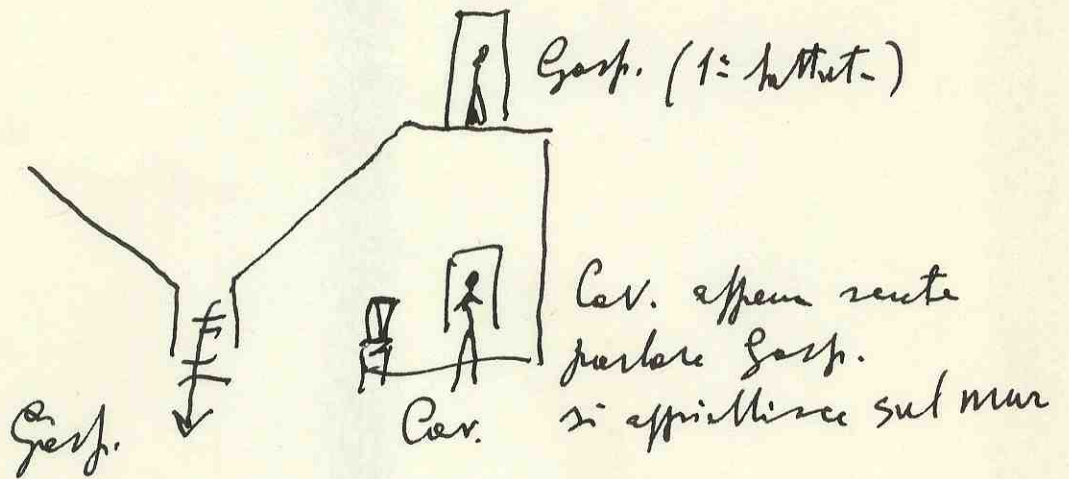 Gasp. (1ª battuta)
Cav. appena sente
parlare Gasp.
si appiattisce sul mur
Gasp.
Cav.